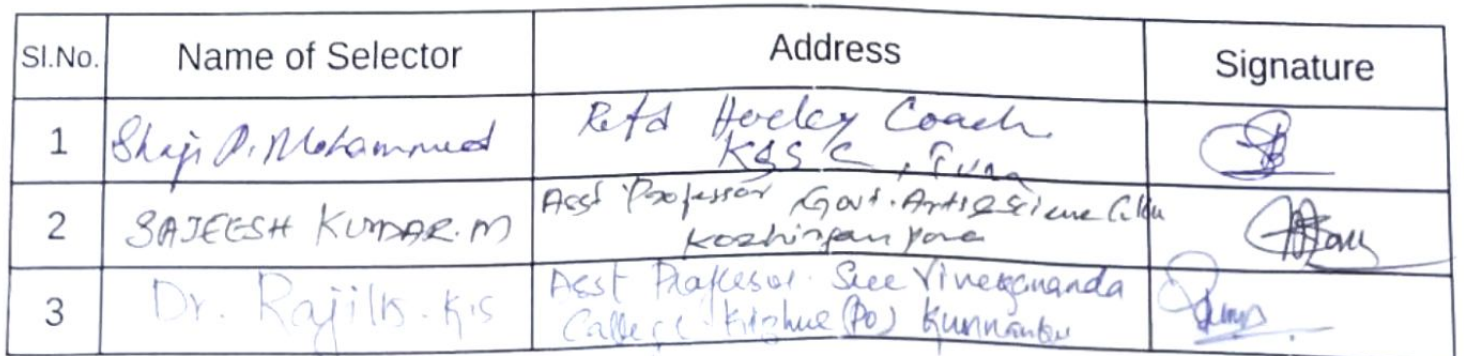 Sl.No. Name of Selector Address Signature
1 Shaji P. Mohammed Retd Hockey Coach
KSSC,
2 SAJEESH KUMAR.M Asst Professor Govt. Arts & Science
Kozhinjampara
3 Dr. K.S Asst Professor Sree Vivekananda
College (Po)